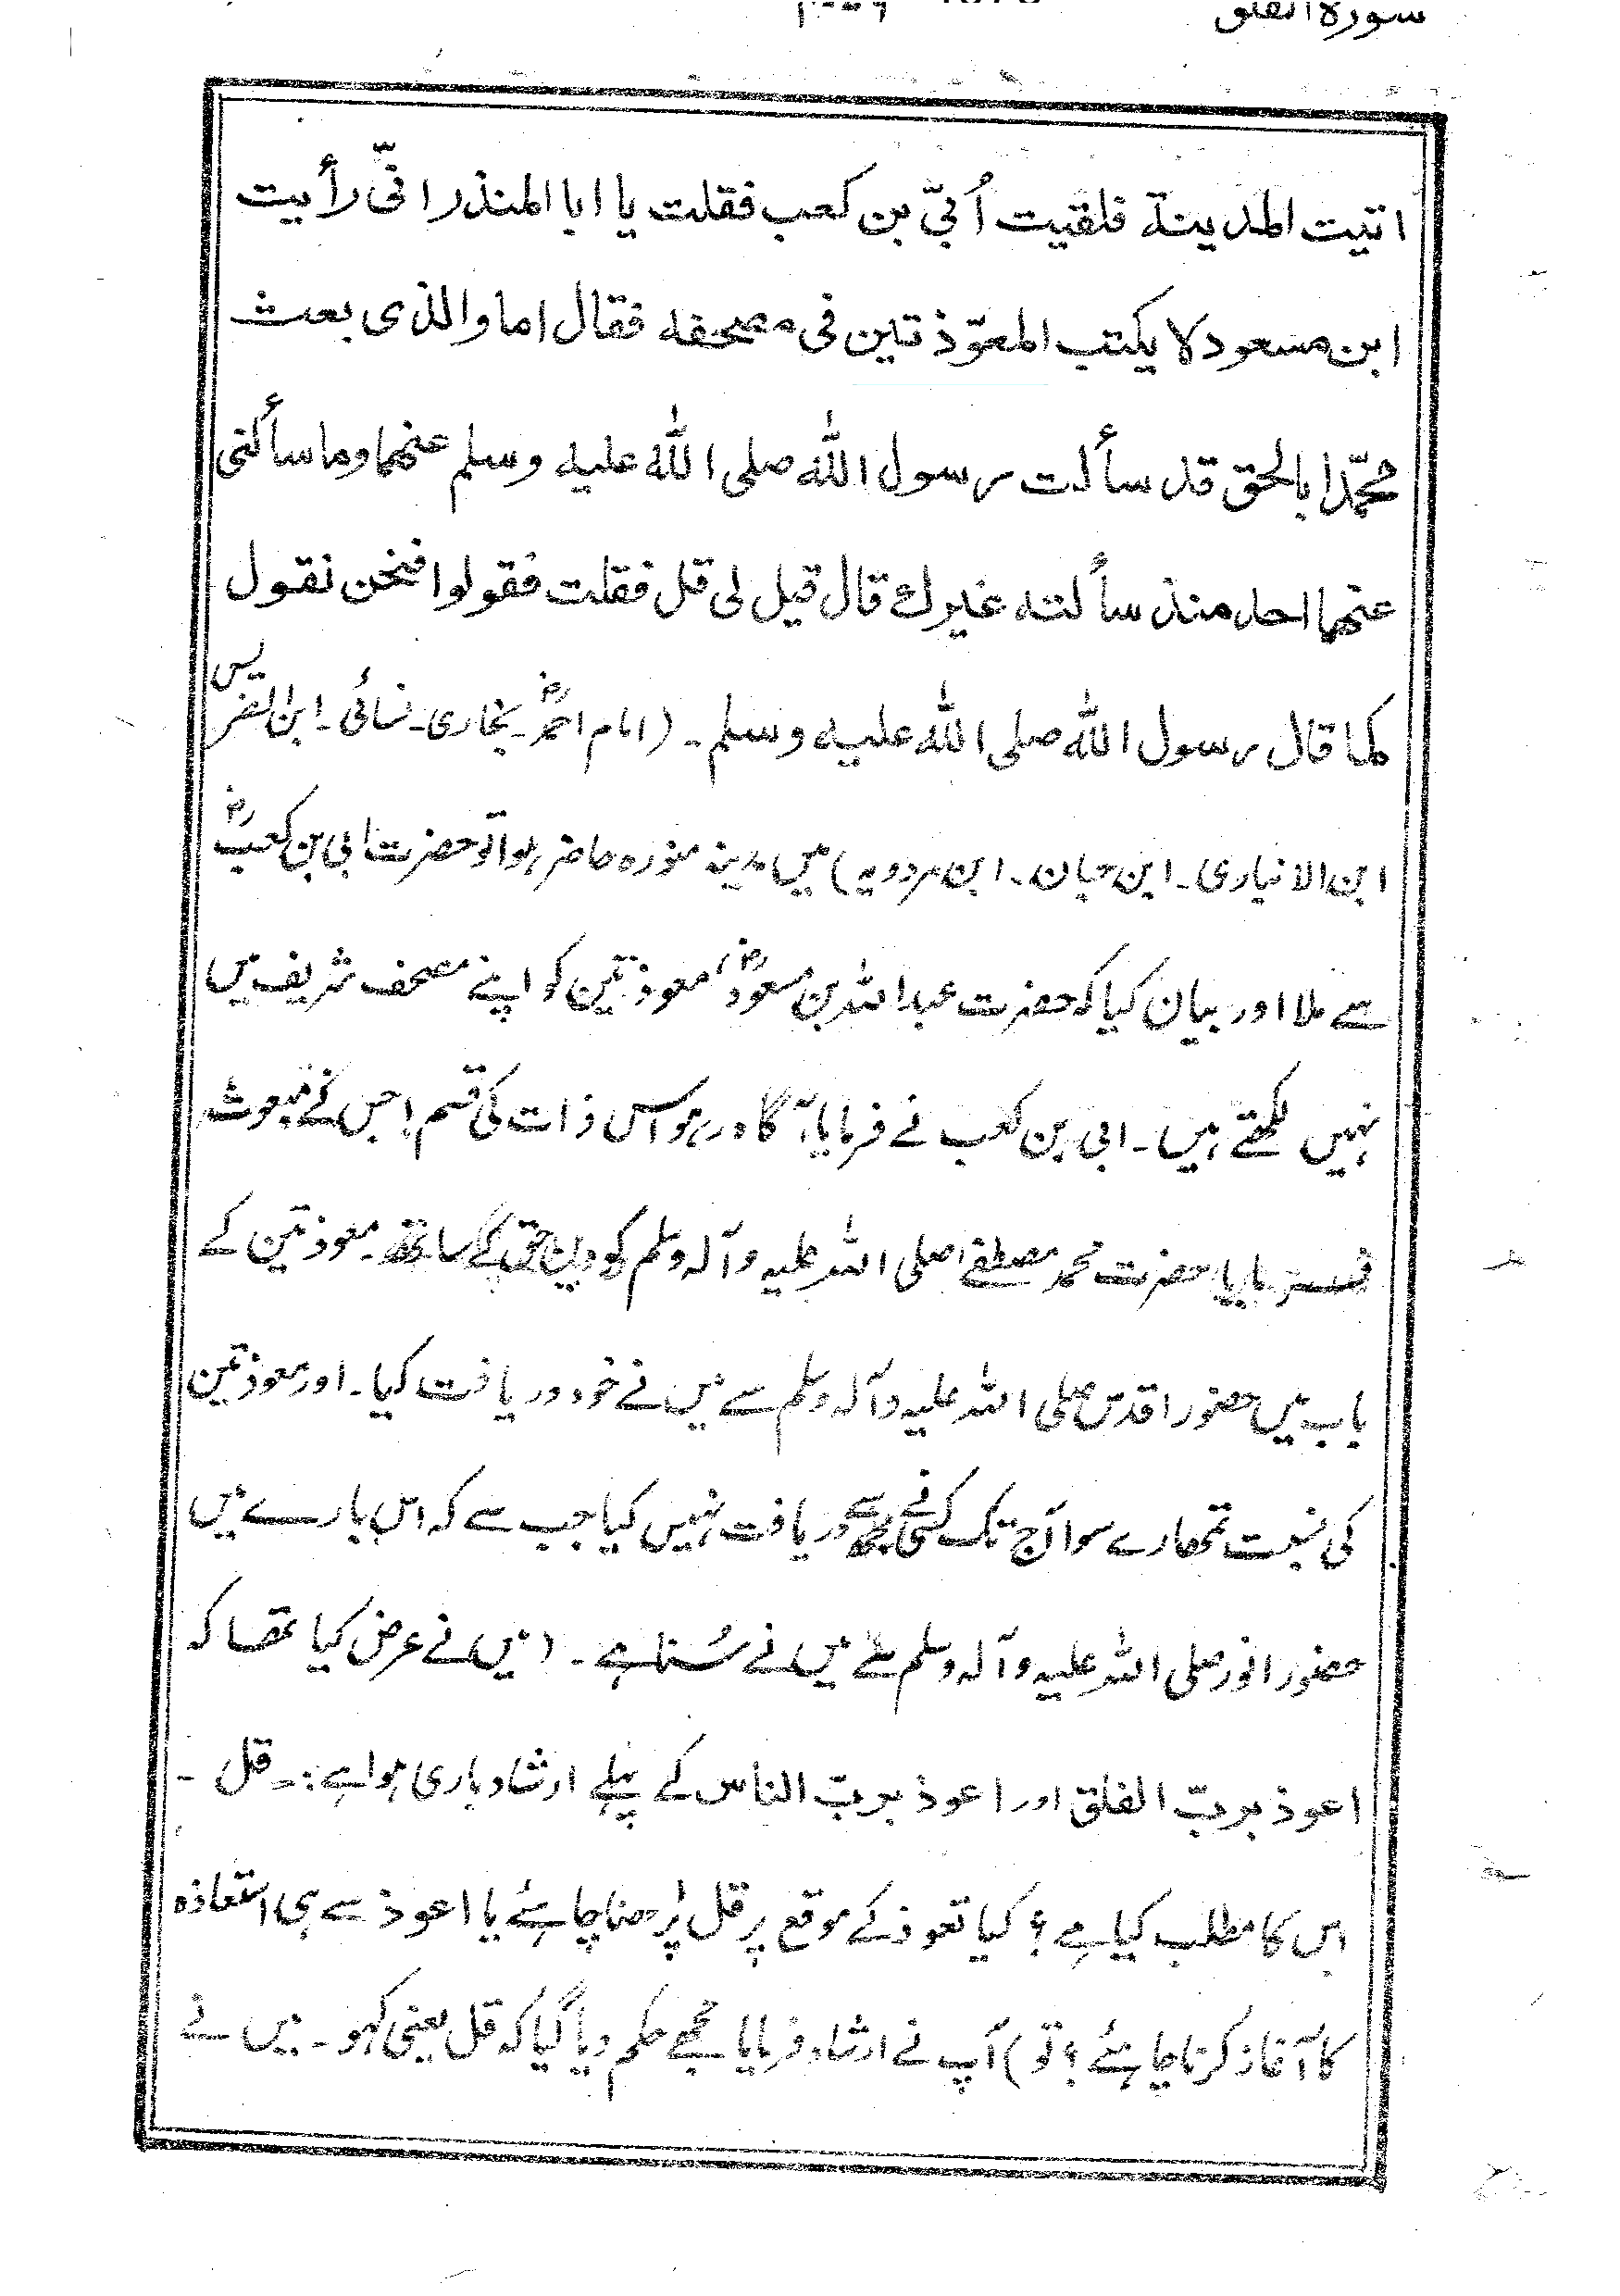 سورة الفلق
اتیت المدینة فلقیت اُبیّ بن کعب فقلت یا ابا المنذر انّی رأیت
ابن مسعود لا یکتب المعوّذتین فی مصحفه فقال اما والذی بعث
محمّدا بالحق قد سألت رسول اللّٰه صلی اللّٰه علیه وسلم عنهما وما سألنی
عنهما احد منذ سألته غیرك قال قیل لی قل فقلت فقولوا فنحن نقول
کما قال رسول اللّٰه صلی اللّٰه علیه وسلم ۔ (امام احمدؒ ۔ بخاری ۔ نسائی ۔ ابن الضریس
ابن الانباری ۔ ابن حبان ۔ ابن مردویہ) میں مدینہ منورہ حاضر ہوا تو حضرت ابی بن کعبؓ
سے ملا اور بیان کیا کہ حضرت عبداللہ بن مسعودؓ، معوذتین کو اپنے مصحف شریف میں
نہیں لکھتے ہیں ۔ ابی بن کعب نے فرمایا، آگاہ رہو اس ذات کی قسم! جس نے مبعوث
فرمایا حضرت محمد مصطفےٰ صلی اللہ علیہ وآلہ وسلم کو دین حق کے ساتھ ۔ معوذتین کے
باب میں حضور اقدس صلی اللہ علیہ وآلہ وسلم سے میں نے خود دریافت کیا ۔ اور معوذتین
کی نسبت تمھارے سوا آج تک کسی نے مجھ سے دریافت نہیں کیا جب سے کہ اس بارے میں
حضور انور صلی اللہ علیہ وآلہ وسلم سے میں نے سُنا ہے ۔ (میں نے عرض کیا تھا کہ
اعوذ بربّ الفلق اور اعوذ بربّ الناس کے پہلے ارشاد باری ہوا ہے :۔ قل ۔
اس کا مطلب کیا ہے ؟ کیا تعوذ کے موقع پر قل پڑھنا چاہئے یا اعوذ سے ہی استعاذہ
کا آغاز کرنا چاہئے ؟ تو) آپ نے ارشاد فرمایا مجھے حکم دیا گیا کہ قل یعنی کہو ۔ میں نے